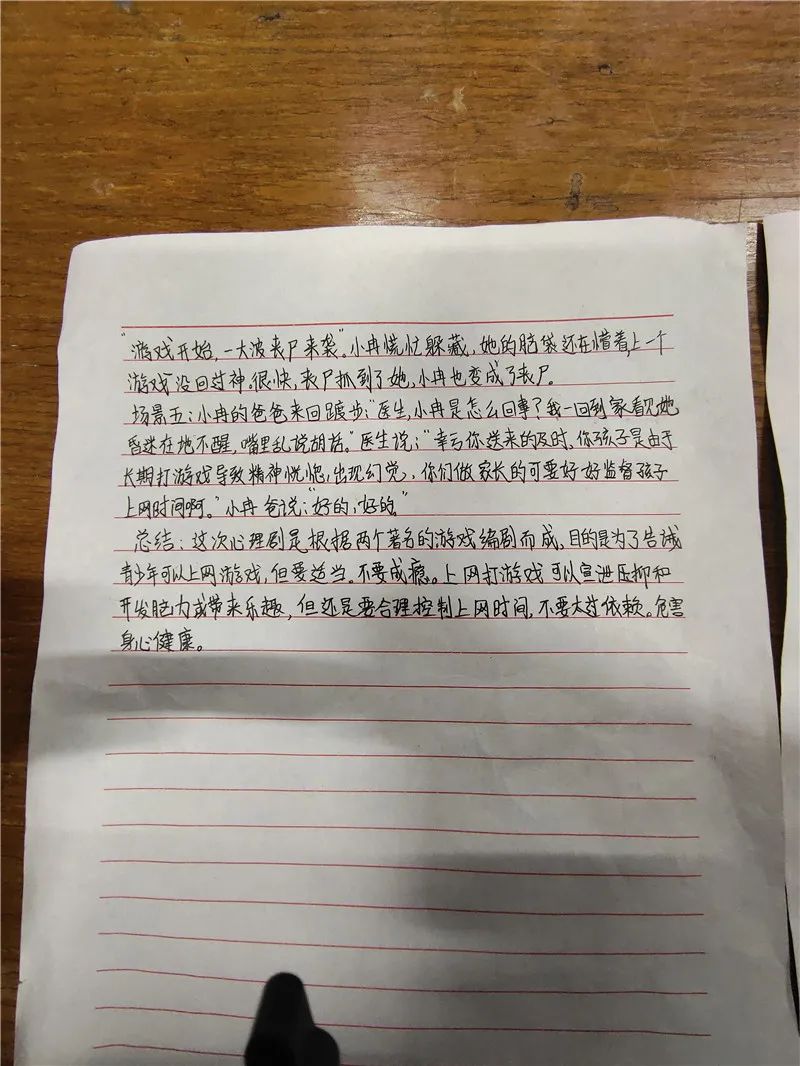 “游戏开始,一大波丧尸来袭”。小冉慌忙躲藏,她的脑袋还在懵着,上一个
游戏没回过神。很快,丧尸抓到了她,小冉也变成了丧尸。
场景五:小冉的爸爸来回踱步:“医生,小冉是怎么回事?我一回到家看见她
昏迷在地不醒,嘴里乱说胡话。”医生说:“幸亏你送来的及时,你孩子是由于
长期打游戏导致精神恍惚,出现幻觉,你们做家长的可要好好监督孩子
上网时间啊。”小冉爸说:“好的,好的。”
总结:这次心理剧是根据两个著名的游戏编剧而成,目的是为了告诫
青少年可以上网游戏,但要适当。不要成瘾。上网打游戏可以宣泄压抑和
开发脑力或带来乐趣,但还是要合理控制上网时间,不要太过依赖。危害
身心健康。